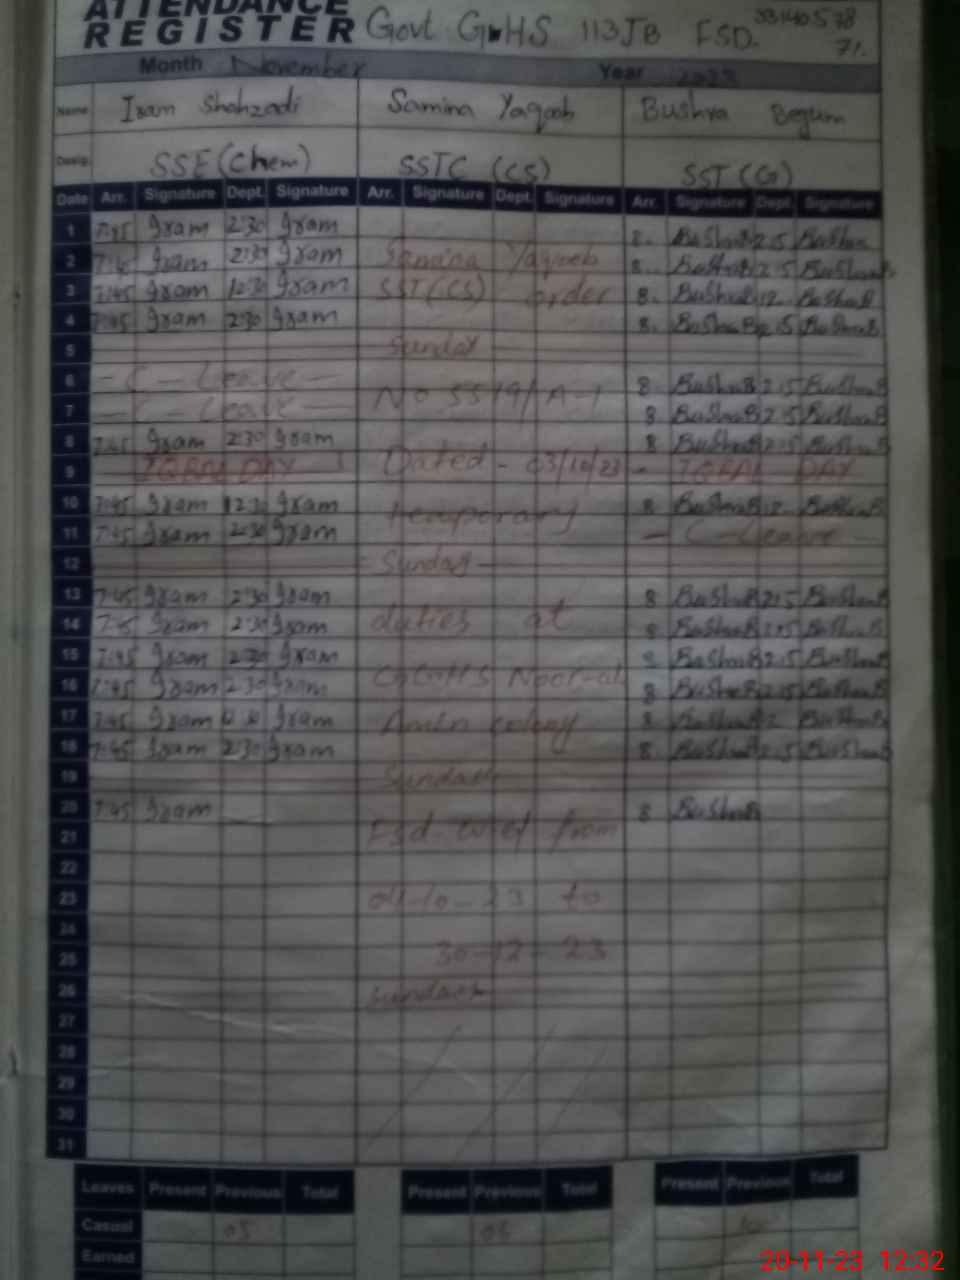 ATTENDANCE
REGISTER Govt GGHS 113JB FSD. 33140578
71.
Month November Year 2023
Name Iram Shahzadi Samina Yaqoob Bushra Begum
Desig. SSE (Chem) SSTC (CS) SST (G)
Date Arr. Signature Dept. Signature Arr. Signature Dept. Signature Arr. Signature Dept. Signature
1 7:45 Iram 2:30 Iram 8. BushraB 2.5
2 7:45 Iram 2:30 Iram Samina Yaqoob 8. BushraB 2.5 BushraB
3 7:45 Iram 12:30 Iram SST(CS) order 8. BushraB 12. BushraB
4 7:45 Iram 2:30 Iram 8. BushraB 2.15 BushraB
5 Sunday
6 - C - Leave - 8. BushraB 2.5 BushraB
7 - C - Leave - No 5519/A-1 8 BushraB 2.5 BushraB
8 7:45 Iram 2:30 Iram 8 BushraB 2.5 BushraB
9 IQBAL DAY Dated - 03/10/23 - IQBAL DAY
10 7:45 Iram 12:30 Iram temporary 8 BushraB 12. BushraB
11 7:45 Iram 2:30 Iram - C - Leave -
12 Sunday
13 7:45 Iram 2:30 Iram 8 BushraB 2.5 BushraB
14 7:45 Iram 2:30 Iram duties at 8 BushraB 2.5 BushraB
15 7:45 Iram 2:30 Iram 8 BushraB 2.5 BushraB
16 7:45 Iram 2:30 Iram GGHS Noor-al 8 BushraB 2.15 BushraB
17 7:45 Iram 12:30 Iram Amin colony 8 BushraB 12 BushraB
18 7:45 Iram 2:30 Iram 8. BushraB 2.5 BushraB
19 Sunday
20 7:45 Iram 8 BushraB
21 Fsd w.e.f from
22
23 04-10-23 to
24
25 30-12-23
26 Sunday
27
28
29
30
31
Leaves Present Previous Total Present Previous Total Present Previous Total
Casual 05
Earned
20-11-23 12:32